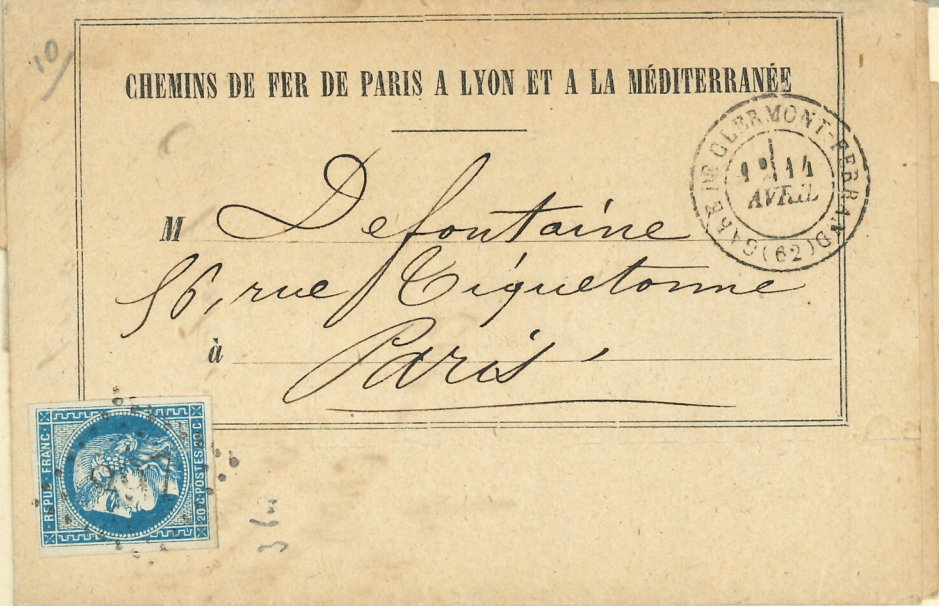 10
CHEMINS DE FER DE PARIS A LYON ET A LA MÉDITERRANÉE
GARE DE CLERMONT-FERRAND (62)
14
AVRIL
M Defontaine
56, rue Tiquetonne
à Paris
REPUB. FRANC.
20·C·POSTES·20·C